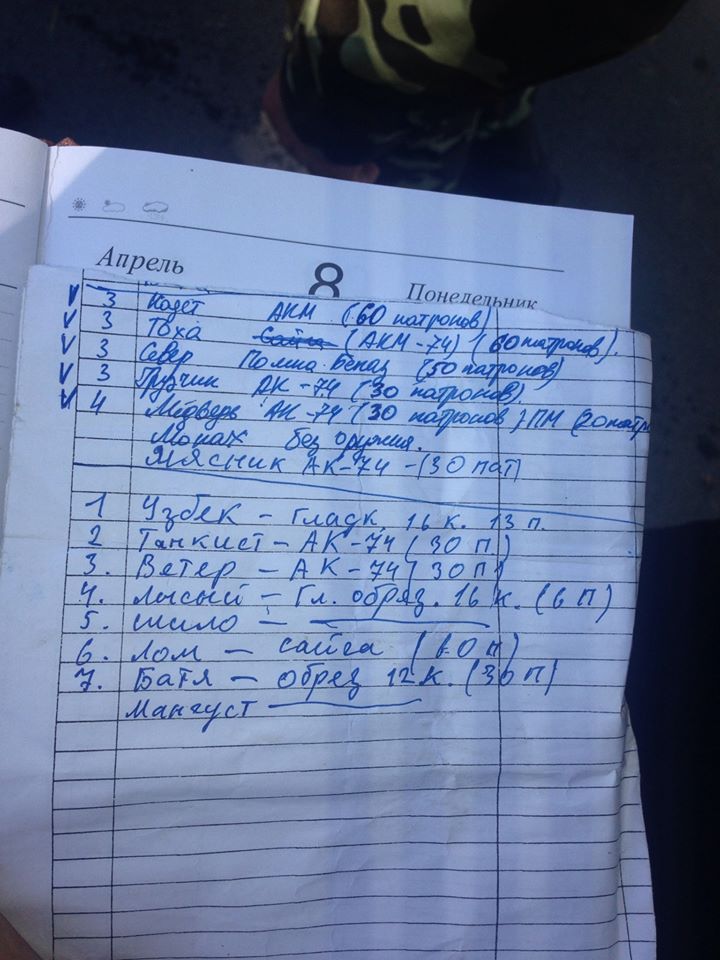 Апрель 8 Понедельник
3 Кадет АКМ (60 патронов)
3 Тоха Сайга (АКМ-74) (60 патронов).
3 Север (50 патронов)
3 Грузчик АК-74 (30 патронов).
4 Мідведь АК-74 (30 патронов) ПМ (20 патро
Монах без оружия.
Мясник АК-74 - (30 пат)
1 Узбек - гладк. 16 к. 13 п.
2 Танкист - АК-74 (30 п.)
3. Ветер - АК-74 (30 п)
4. Лысый - Гл. обряз. 16 к. (6 п)
5. шило -
6. Лом - сайга (60 п)
7. Батя - обрез 12 к. (30 п)
Мангуст